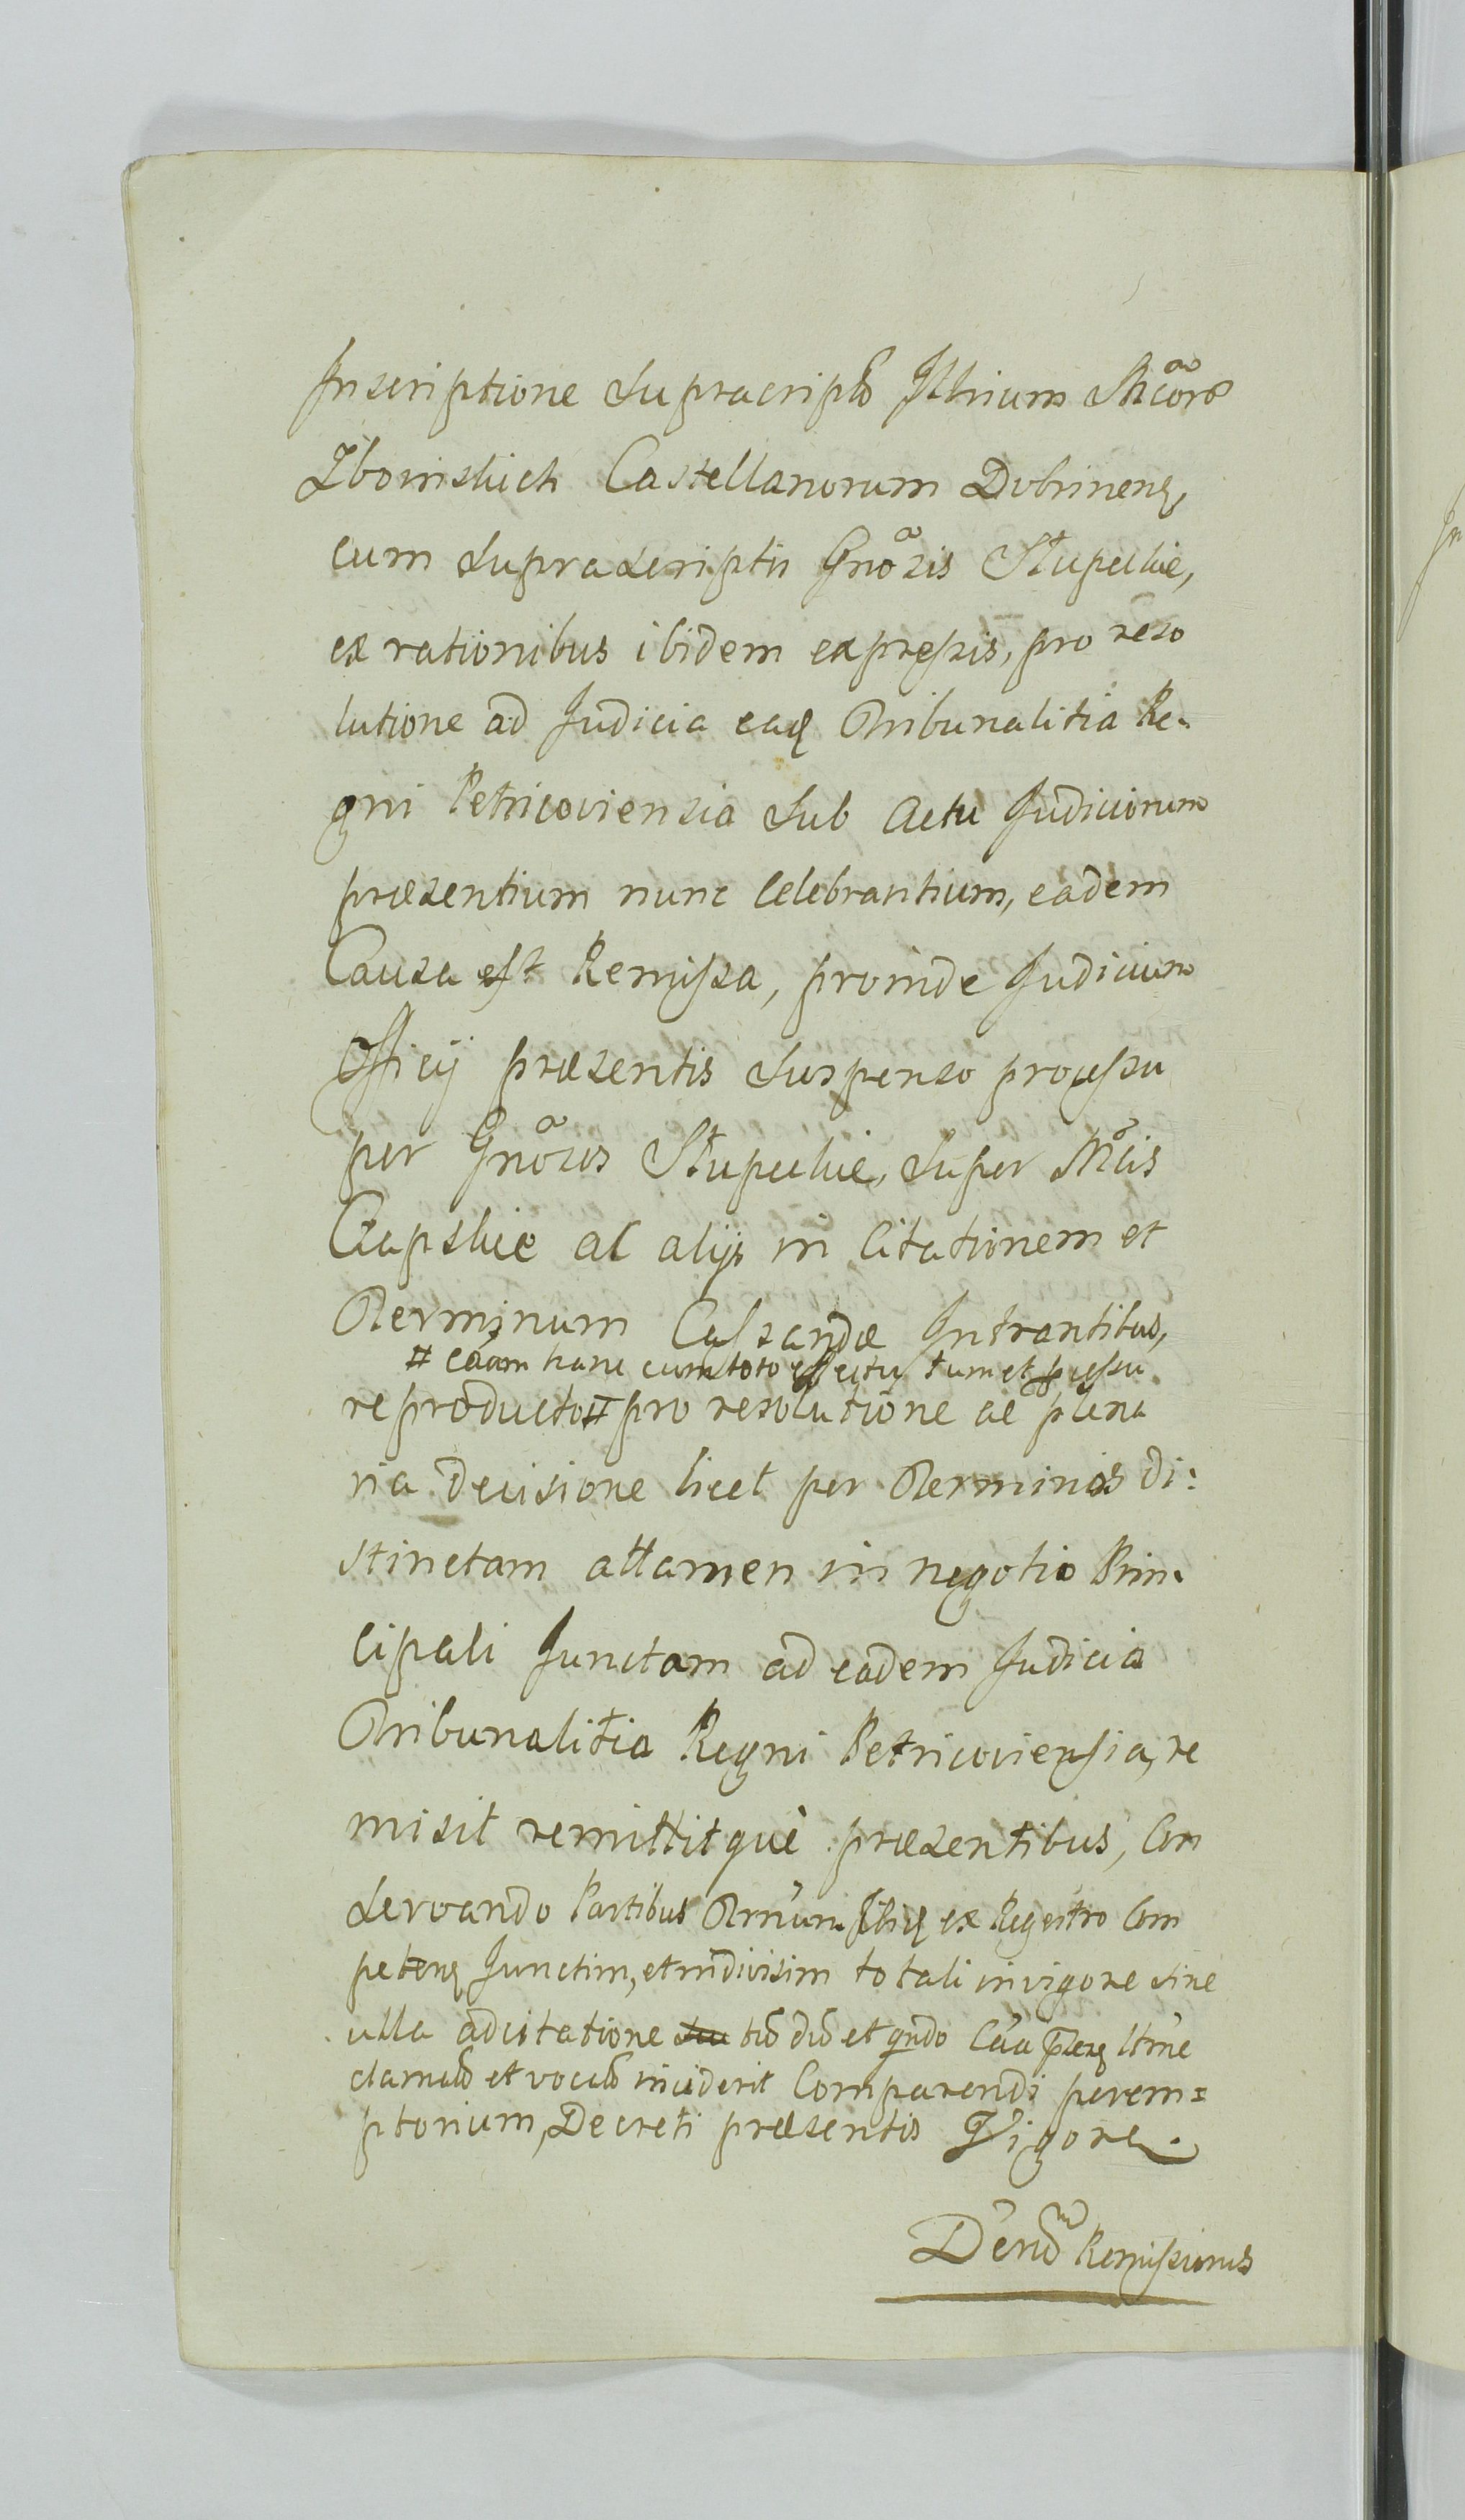 Inscriptione supracripto Illrium Mcoro
Zboinskich Castellanorum Dobrinen,
cum supra scriptis Gnosis Stupeckie,
ex rationibus ibidem expressis, pro reso
lutione ad Judicia eaq Tribunalitia Re-
gni Petricoviensia sub actu Judiciorum
præsentium nunc Celebrantium, eadem
Causa est Remissa, proinde Judicium
Officij præsentis suspenso processu
per Gnosos Stupeckie, super Mcis
Czapskie ac alijs in Citationem et
Terminum Cassandæ Intrantibus,
# eaam hanc cum toto effectu tum et pcessu
reproducto # pro resolutione ac plena
ria Decisione licet per Terminos di:
stinctam attamen in negotio Prin-
cipali Junctam ad eadem Judicia
Tribunalitia Regni Petricoviensia, re
misit remittitque præsentibus, Con
servando Partibus Trnum Ibiq ex Regestro Com
peten Junctim, et indivisim totali in vigore sine
ulla adcitatione tio dio et qndo Caa ltme
clamato et vocato inciderit Comparendi perem=
ptorium, Decreti præsentis Vigore.
Remissionis